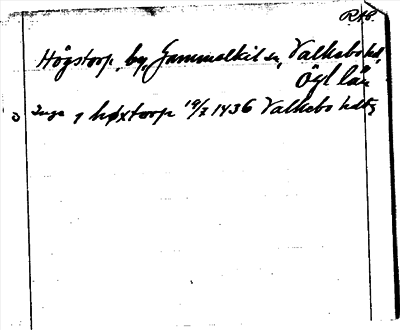 RAp.
Högstorp, by, Gammalkil sn, Valkebo hd,
Ögl län
Inge j høxtorp 19/7 1436 Valkebo hdtg